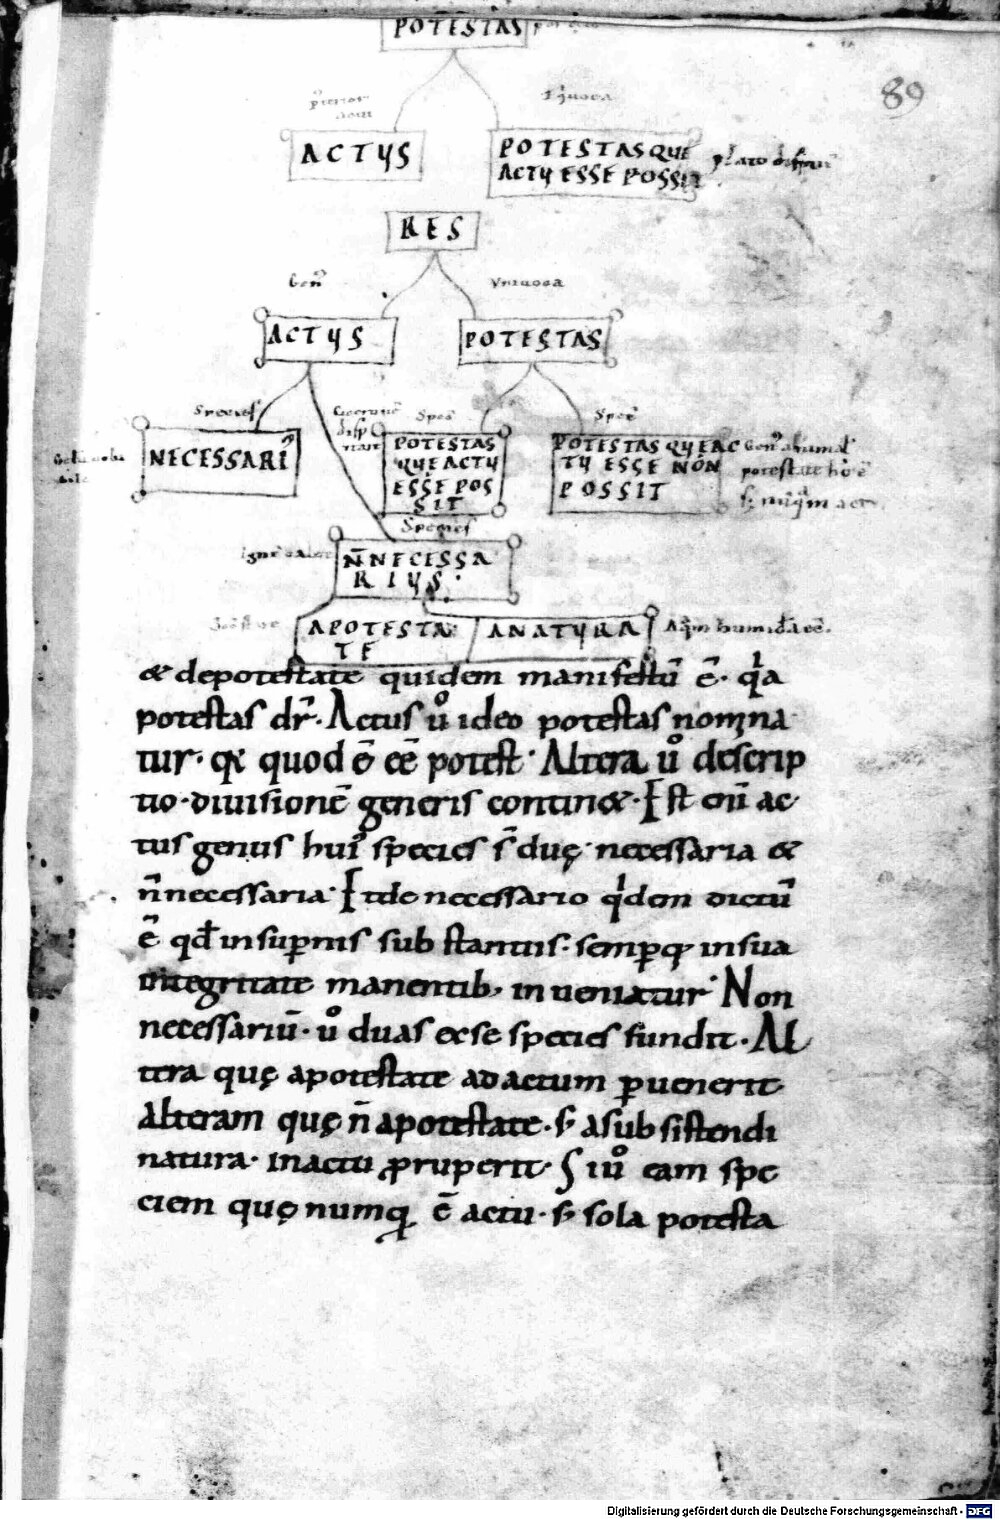 POTESTAS
89
ACTUS
POTESTAS QUE
ACTU ESSE POSSIT
RES
Gen᷒
Uniuoca
ACTUS
POTESTAS
Species
Speēs
NECESSARI᷒
POTESTAS
QUE ACTU
ESSE POS
SIT
POTESTAS QUE AC
TU ESSE NON
POSSIT
Species
N̄ NECESSA
RIUS·
A POTESTA
TE
A NATURA
& depotestate quidem manifestū ē· qͥa
potestas dr̄· Actus ů ideo potestas nomina
tur· qꝛ quod ē eē potest· Altera ů descrip
tio· diuisionē generis contin&· Est eni᷒ ac
tus genus hui᷒ species s̄ duę· necessaria &
n̄necessaria· Et de necessario qͥdem dictū
ē qd̄ insupernis substantiis· semperq; insua
integritate manentib; inueniatur· Non
necessariū· ů duas exse species fundit· Al
tera quę apotestate adactum ꝑuenerit
Alteram quę n̄ apotestate· s; asubsistendi
natura· inactu ꝓruperit· Siů eam spe
ciem quę numq; ē actu· s; sola potesta
Digitalisierung gefördert durch die Deutsche Forschungsgemeinschaft - DFG